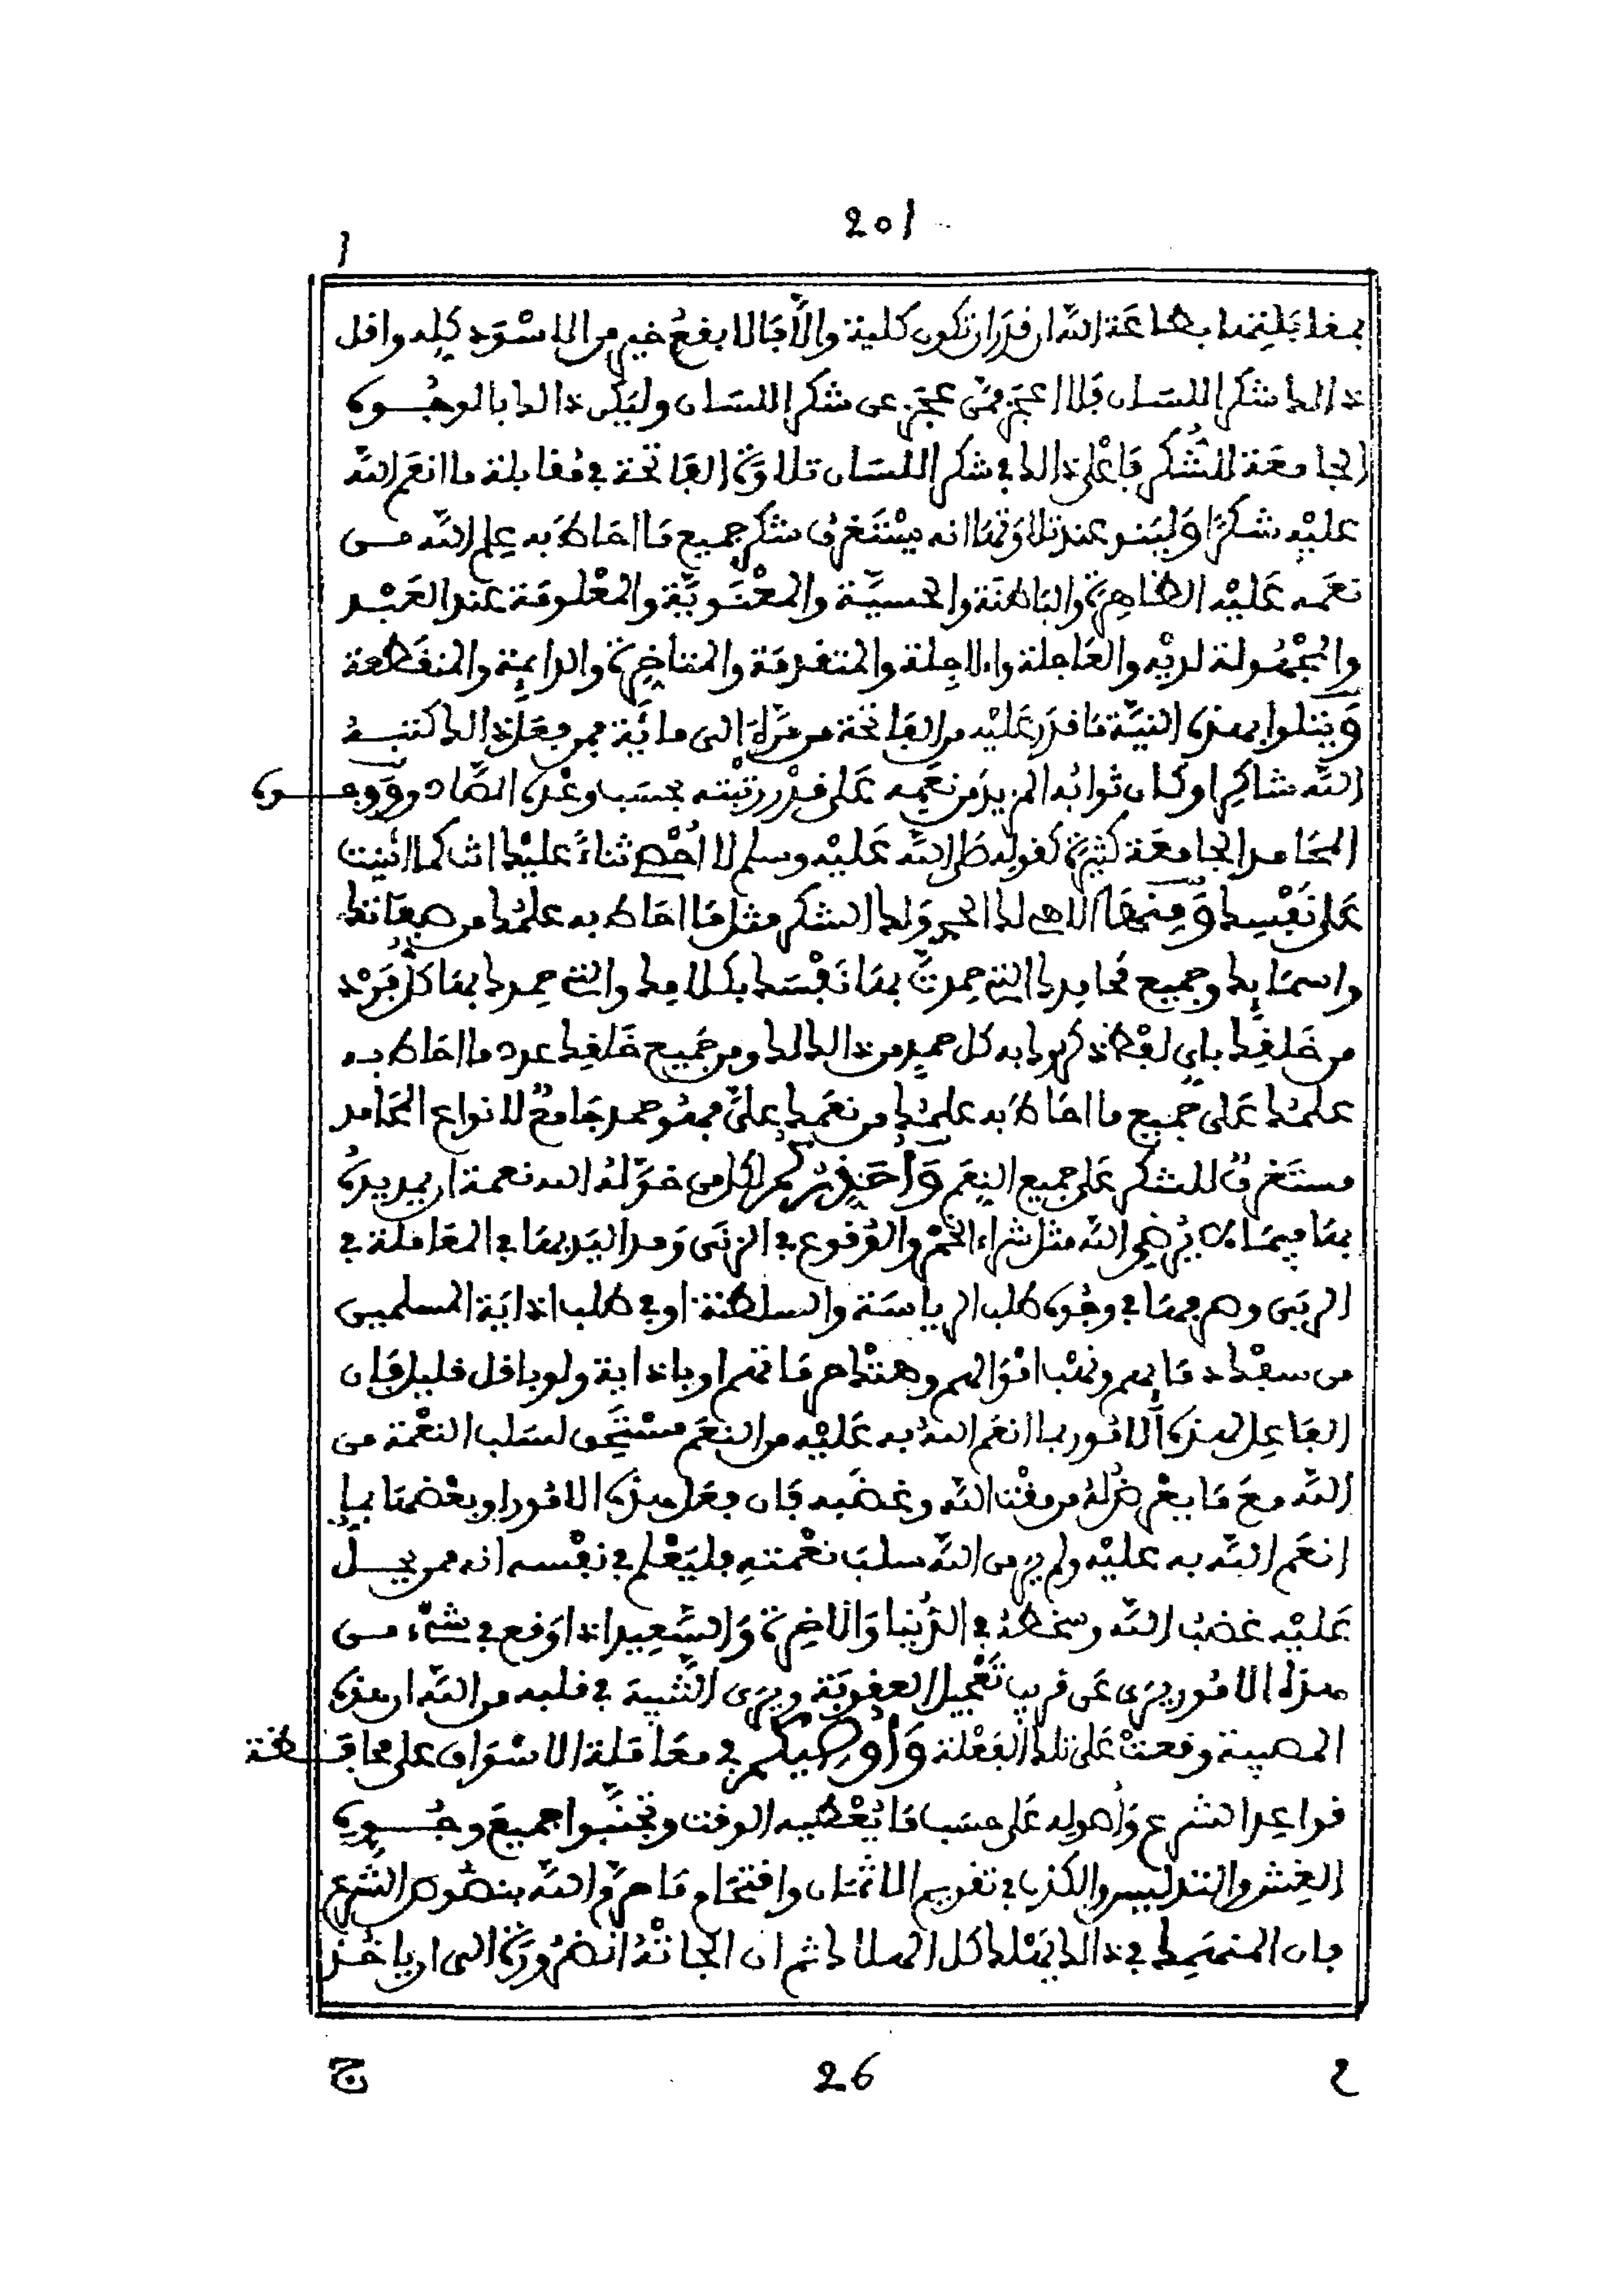 201
ا
بمقابلتها بطاعة الله ان قدر ان تكون كلية والا فالابقع خير من الاسود كله واقل
ذالك شكر اللسان فلا اعجز ممن عجز عن شكر اللسان وليكن ذالك بالوجوه
الجامعة للشكر فاعلى ذالك في شكر اللسان تلاوة الفاتحة في مقابلة ما انعم الله
عليه شكرا ولينو عند تلاوتها انه يستغرق شكر جميع ما احاط به علم الله من
نعمه عليه الظاهرة والباطنة والحسية والمعنوية والمعلومة عند العبد
والمجهولة لديه والعاجلة والاجلة والمتقدمة والمتاخرة والدايمة والمنقطعة
ويتلوا بهذه النية ما قدر عليه من الفاتحة من مرة الى ماية فمن فعل ذالك كتبه
الله شاكرا وكان ثوابه المزيد من نعمه على قدر رتبته بحسب وعده الصادق ووجوه
المحامد الجامعة كثيرة كقوله صلى الله عليه وسلم لا احصي ثناء عليك انت كما اثنيت
على نفسك ومنها الاهي لك الحمد ولك الشكر مثل ما احاط به علمك من صفاتك
واسمايك وجميع محامدك التي حمدت بها نفسك بكلامك والتي حمدك بها كل فرد
من خلقك باي لفظ ذكروك به كل حمد من ذالك لك ومن جميع خلقك عدد ما احاط به
علمك على جميع ما احاط به علمك من نعمك علي فهو حمد جامع لانواع المحامد
مستغرق للشكر على جميع النعم واحذركم لكل من خوله الله نعمة ان يمد يده
بها فيما لا يرضي الله مثل شراء الخمر والوقوع في الزنى ومد اليد بها في المعاملة في
الربى وصرفها في وجوه طلب الرياسة والسلطنة او في طلب اذاية المسلمين
من سفك دمايهم ونهب اموالهم وهتك حرماتهم او باذاية ولو باقل قليل فان
الفاعل لهذه الامور بما انعم الله به عليه من النعم مستحق لسلب النعمة من
الله مع ما يعرض له من مقت الله وغضبه فان فعل هذه الامور او بعضها بما
انعم الله به عليه ولم ير من الله سلب نعمته فليعلم في نفسه انه ممن يحل
عليه غضب الله وسخطه في الدنيا والاخرة والسعيد اذا وقع في شيء من
هذه الامور يرى عن قريب تعجيل العقوبة ويرى التنبيه في قلبه من الله ان هذه
المصيبة وقعت على تلك الفعلة واوصيكم في معاملة الاسواق على محافظة
قواعد الشرع واصوله على حسب ما يعطيه الوقت وتجنبوا جميع وجوه
الغش والتدليس والكذب في تقويم الاثمان واقتحام ما حرم الله بنصوص الشرع
فان المنهمك في ذالك يهلك كل الهلاك ثم ان الجاته الضرورة الى ان ياخذ
ج 26 2